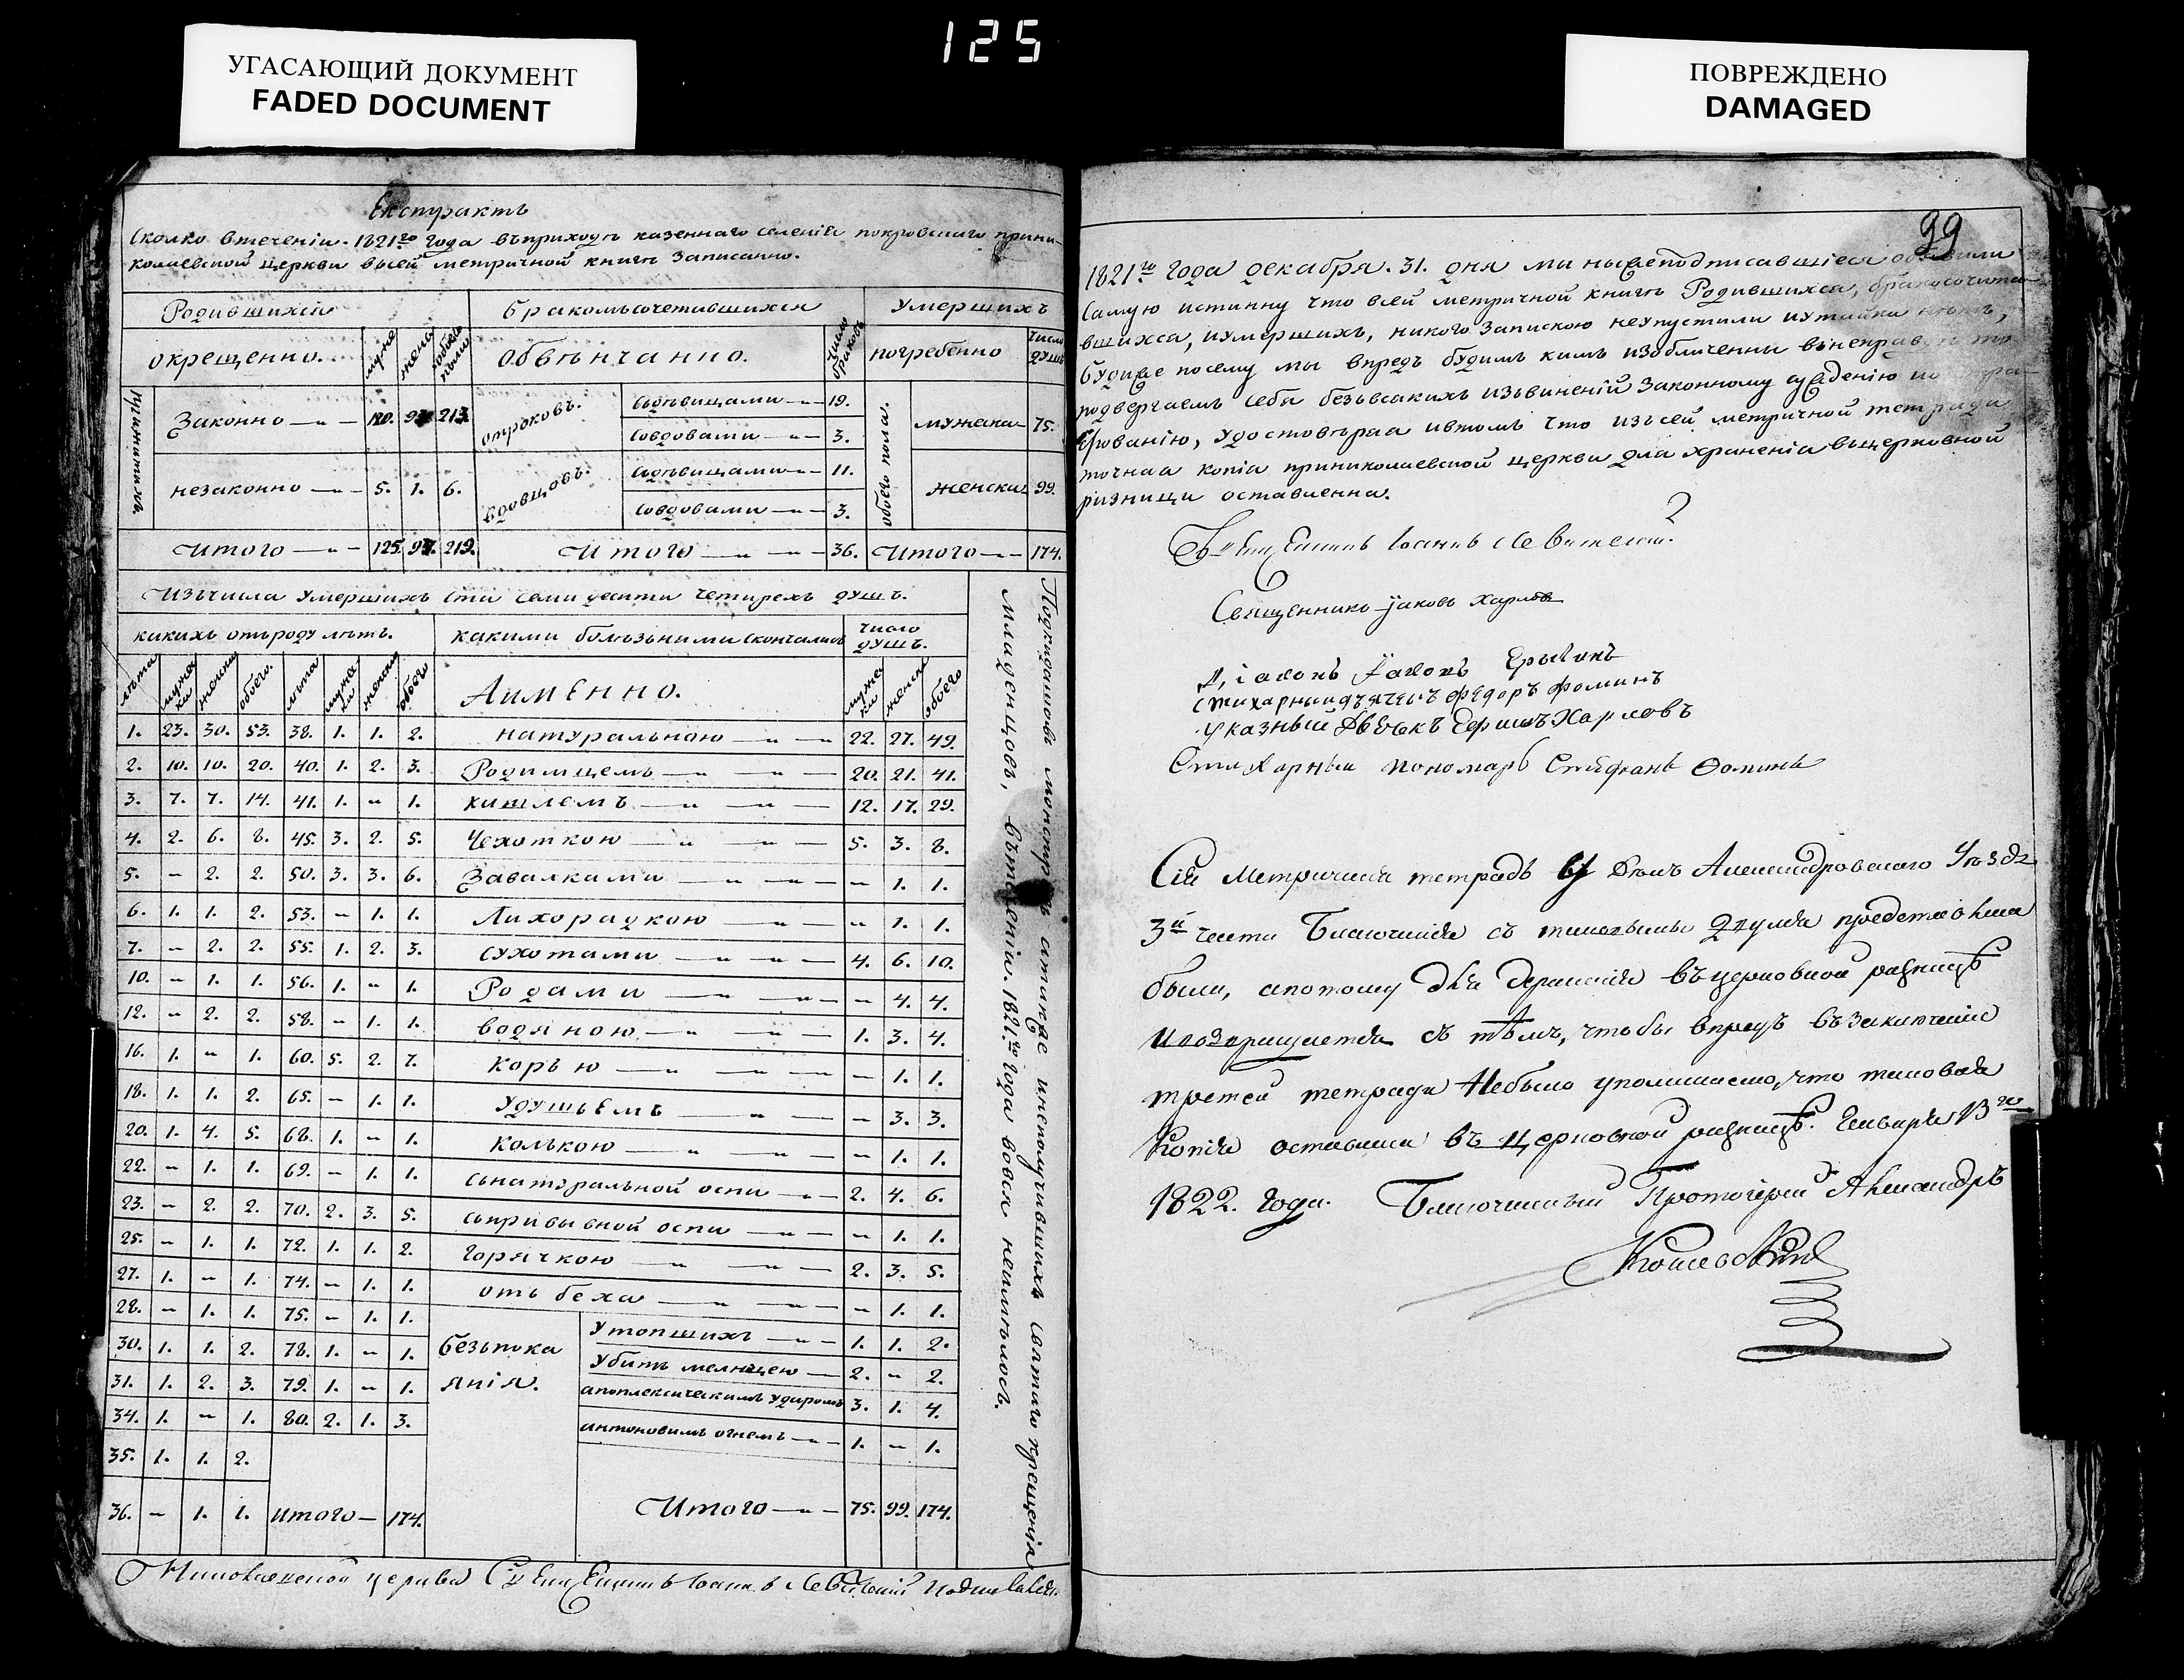 125
УГАСАЮЩИЙ ДОКУМЕНТ
FADED DOCUMENT
ПОВРЕЖДЕНО
DAMAGED
Екстрактъ
Сколко втеченіи 1821го года въприходѣ казеннаго селенія покровскаго прини-
колаевской церкви всей метричной книгѣ записанно.
Родившихся Бракомъсочетавшихся Умершихъ
окрещенно. муже женс обоего полу обвѣнчанно. число браковъ погребенно число душъ
Законно 120. 93. 213. отроковъ. сдѣвицами 19. обоего пола. мужска 75.
совдовами 3.
незаконно 5. 1. 6. вдовцовъ. сдѣвицами 11. женска 99.
совдовами 3.
Итого 125. 94. 219. Итого 36. Итого 174.
Изъчисла умершихъ ста семи десяти четырехъ душъ.
какихъ отъроду лѣтъ. какими болѣзьними скончались число душъ.
лѣта мужска женски обоего. лѣта мужска женски обоего Аименно. мужска женска обоего
1. 23. 30. 53. 38. 1. 1. 2. натуральною 22. 27. 49.
2. 10. 10. 20. 40. 1. 2. 3. Родимцемъ 20. 21. 41.
3. 7. 7. 14. 41. 1. „ 1. кашлемъ 12. 17. 29.
4. 2. 6. 8. 45. 3. 2. 5. Чехоткою 5. 3. 8.
5. – 2. 2. 50. 3. 3. 6. Завалками – 1. 1.
6. 1. 1. 2. 53. – 1. 1. Лихорадкою „ 1. 1.
7. – 2. 2. 55. 1. 2. 3. сухотами 4. 6. 10.
10. – 1. 1. 56. 1. „ 1. Родами – 4. 4.
12. – 2. 2. 58. – 1. 1. водяною 1. 3. 4.
16. 1. „ 1. 60. 5. 2. 7. корью – 1. 1.
18. 1. 1. 2. 65. – 1. 1. удушьемъ – 3. 3.
20. 1. 4. 5. 68. 1. – 1. колькою – 1. 1.
22. – 1. 1. 69. – 1. 1. сънатуральной оспи 2. 4. 6.
23. – 2. 2. 70. 2. 3. 5. съпривывной оспи – 1. 1.
25. – 1. 1. 72. 1. 1. 2. Горячкою 2. 3. 5.
27. 1. – 1. 74. – 1. 1. отъ беха – 1. 1.
28. – 1. 1. 75. – 1. 1. безъпока утопшихъ 1. 1. 2.
30. 1. 1. 2. 78. 1. – 1. янія. убитъ мелницею 2. – 2.
31. 1. 2. 3. 79. 1. – 1. апоплексическимъ ударомъ 3. 1. 4.
34. 1. – 1. 80. 2. 1. 3. антоновимъ огнемъ 1. – 1.
35. 1. 1. 2.
36. – 1. 1. итого 174. Итого 75. 99. 174.
инеполучившихъ святаго крещенія
младенцовъ, 1821го года вовся неимѣлось.
церкви Іоаннъ Левитскій
99
1821го года декабря 31. дня ми нижеподписавшіеся
самую истинну что всей метричной книгѣ Родившихся,
вшихся, иумершихъ, никого запискою неупустили иутайки нѣтъ,
будиже посему мы впредь будимъ кимъ изобличенны
подвергаемъ себя безьвсакихъ изьвиненій законному сужденію
удостовѣряя ивтомъ что изъсей метричной тетради
точная копія приниколаевской церкви для храненія вьцерковной
ризници оставленна.
Іоаннъ Левитскій
Священникъ Іаковъ Харловъ
Діаконъ
стихарныйдьячекъ Федоръ Фоминъ
указный Дьячокъ Харловъ
Стихарный пономарь Стефанъ Ѳоминъ
Сія метричная тетрадь Александровскаго Уѣзда
3й части Благочинія съ таковыми 2мумя
были, апотому для храненія въцерковной ризницѣ
и возвращается съ тѣмъ, чтобы впредь въ заключеніе
третей тетради Небыло упоминаемо, что таковая
Копія оставлена въ церковной ризницѣ. Генваря 13го
1822. года. Благочинный Протоіерей Александръ